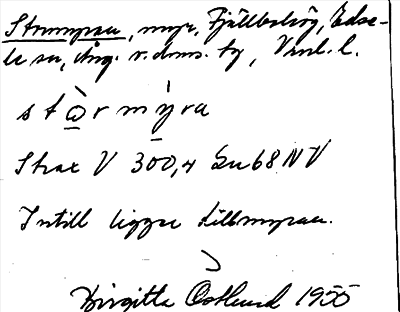 Stormyran, myr, Fjällbohög, Edse-
le sn, Ång. v. doms. tg, Vnl. l.
stɑ̀rmýra
Strax V 300,4 Gu 68 NV
Intill ligger Lillmyran.
Birgitta Östlund 1955